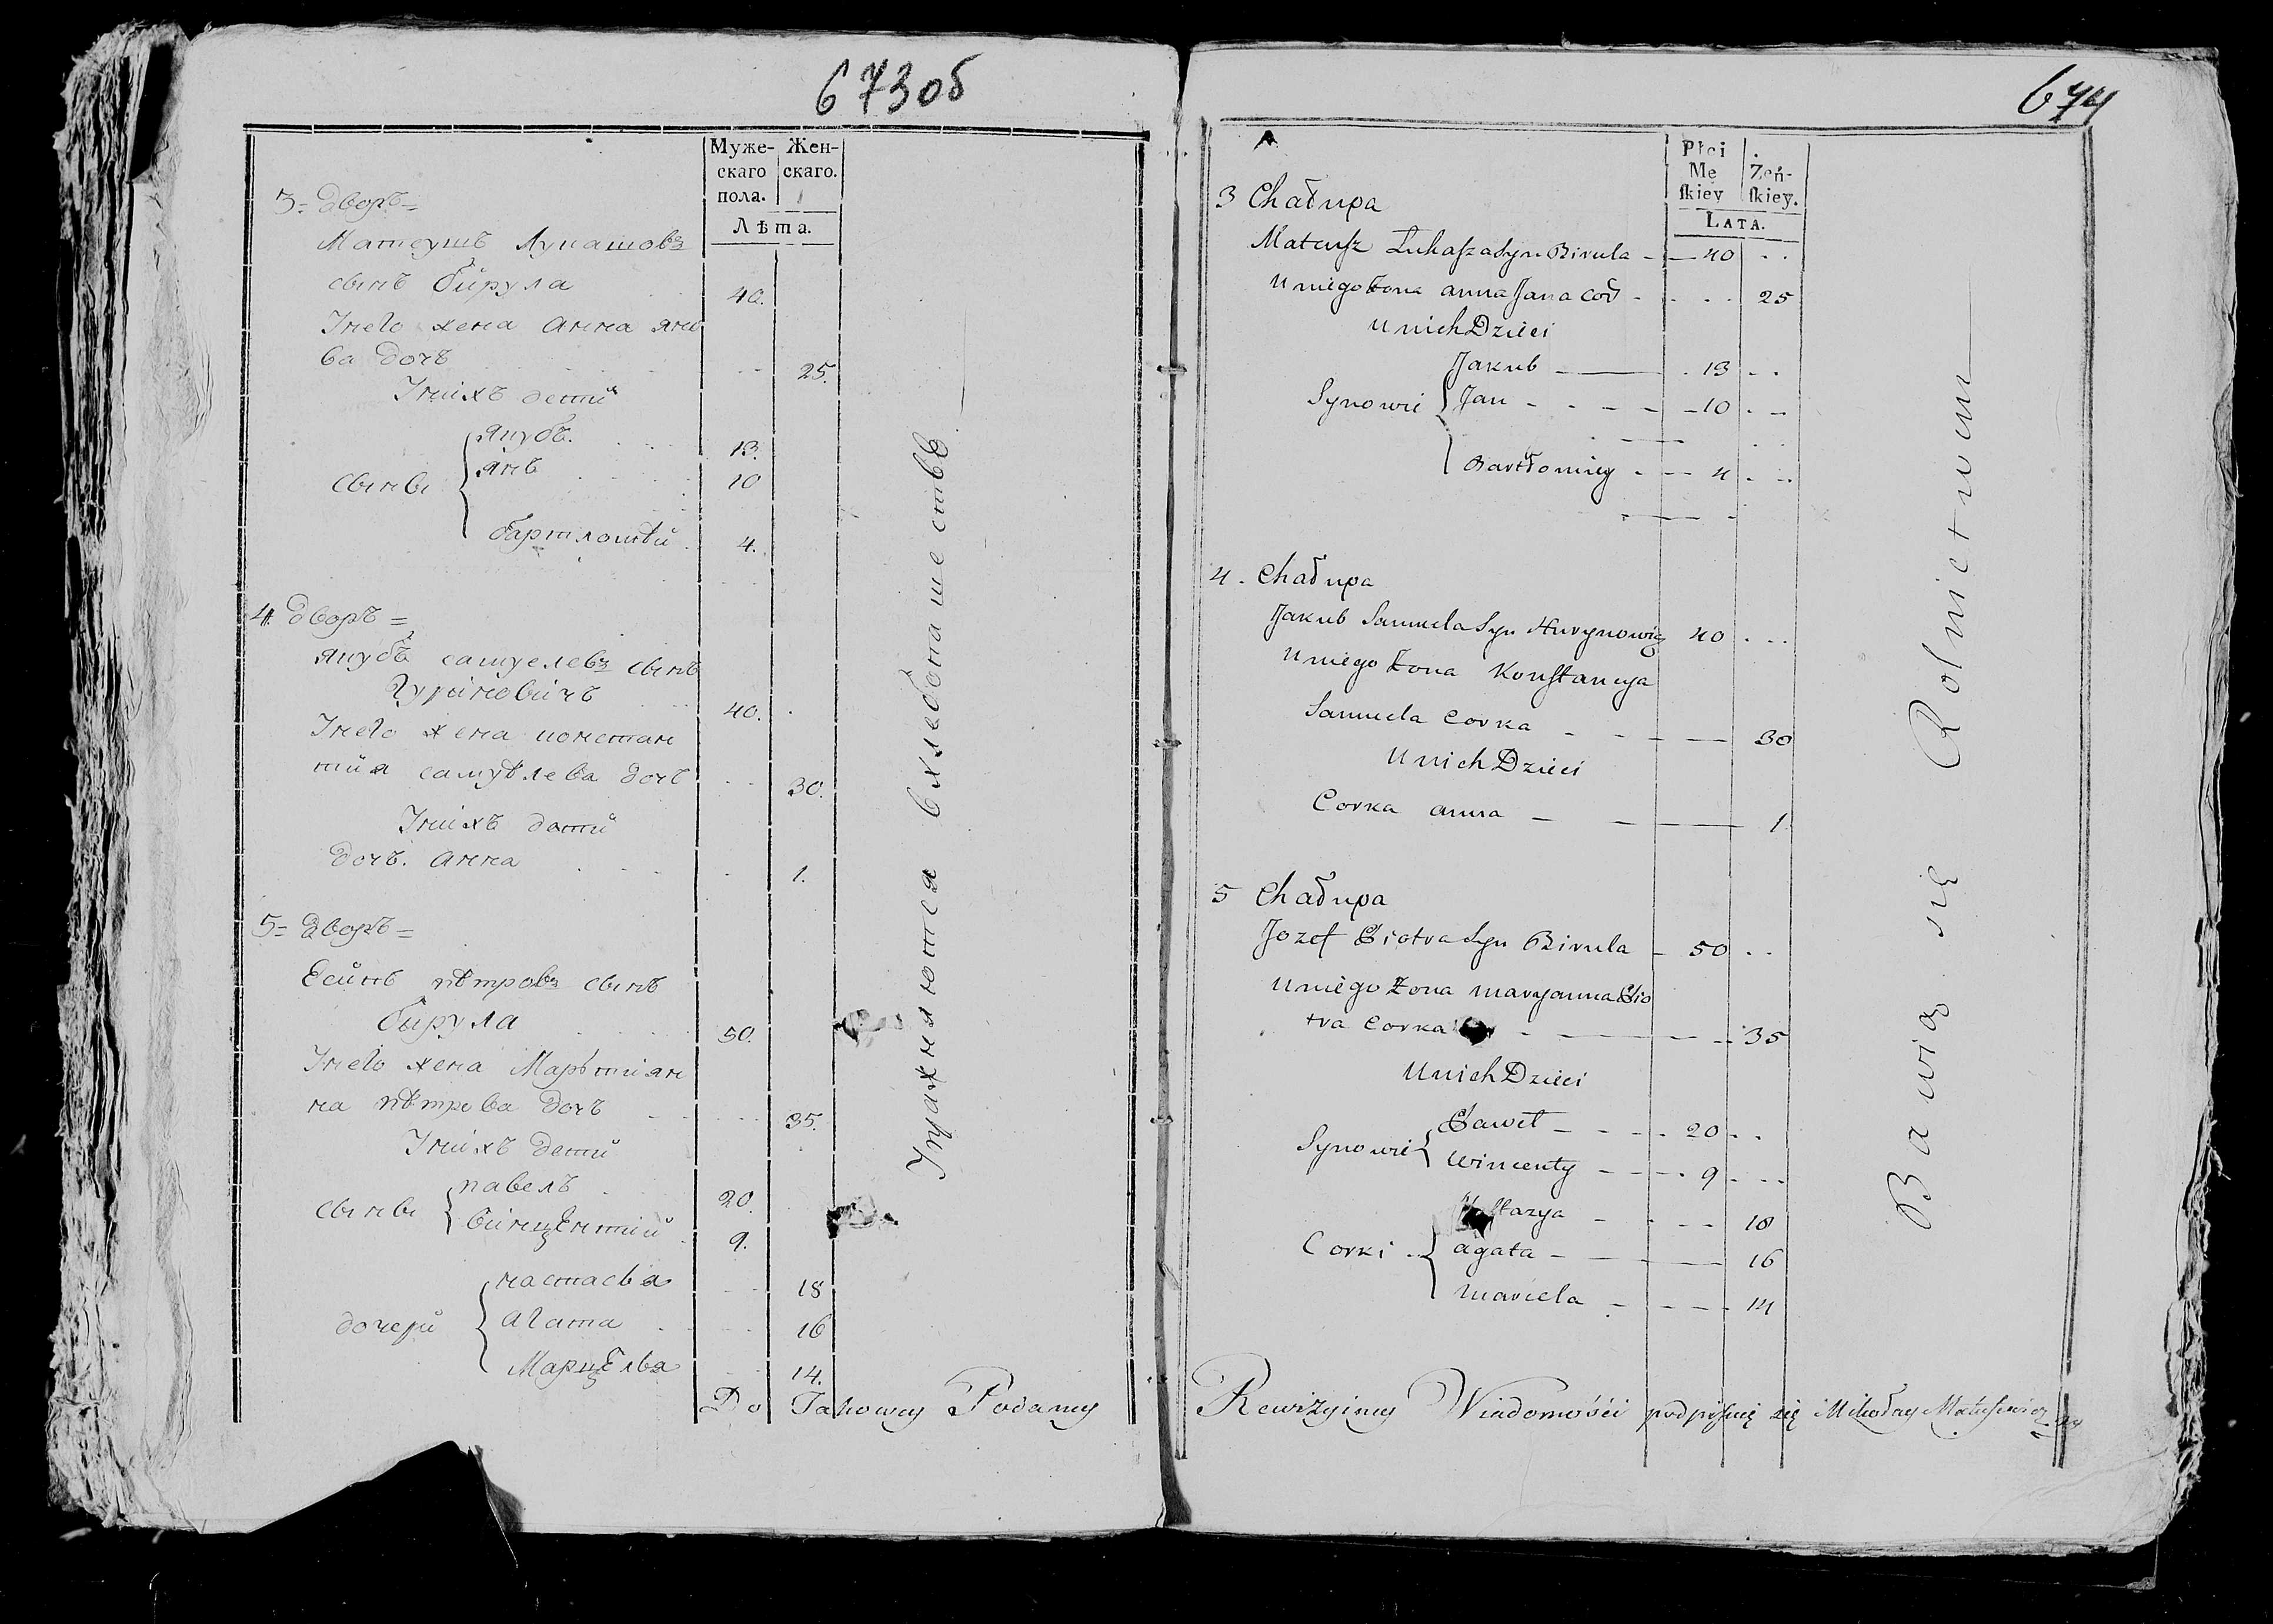 673об
Муже- Жен-
скаго скаго.
пола.
Лѣта.
3= дворъ=
Матеушъ Лукашовъ
сынъ Бирула 40.
Унего жена Анна яно
ва дочь 25.
Унихъ дети
якубъ. 13.
сыны янъ 10
бартломѣй 4.
4. дворъ=
якубъ самуелевъ сынъ
Гуриновичъ 40.
Унего жена констан
тия самуѣлева дочь 30.
Унихъ дети
дочь. Анна 1.
5= дворъ=
Есипъ пѣтровъ сынъ
бирула 50.
Унего жена
на пѣтрова дочь 35.
Унихъ дети
павелъ 20.
сыны
винцентий 9.
настасья 18
дочери агата 16
Марцелья 14.
Упражняются в хлебопашестве
Do Takowey Podaney
674
Płci
Mę Zeń-
ſkiey ſkiey.
LATA.
3 Chałupa
Mateusz Łukasza Syn Birula 40
U niego Zona anna Jana Cor 25
U nich Dzieci
Jakub 13
Synowie Jan 10
Bartłomiey 4
4. Chałupa
Jakub Samuela Syn Hurynowicz 40
U niego Zona Konstancya
Samuela Corka 30
U nich Dzieci
Corka anna 1
5 Chałupa
Jozef Piotra Syn Birula 50
U niego Zona maryanna Pio
tra Corka 35
U nich Dzieci
Paweł 20
Synowie
Wincenty 9
18
Corki agata 16
Marcela 14
Bawią się Rolnictwem
Rewizyiney Wiadomości podpisuię się Mikołay Matusewicz